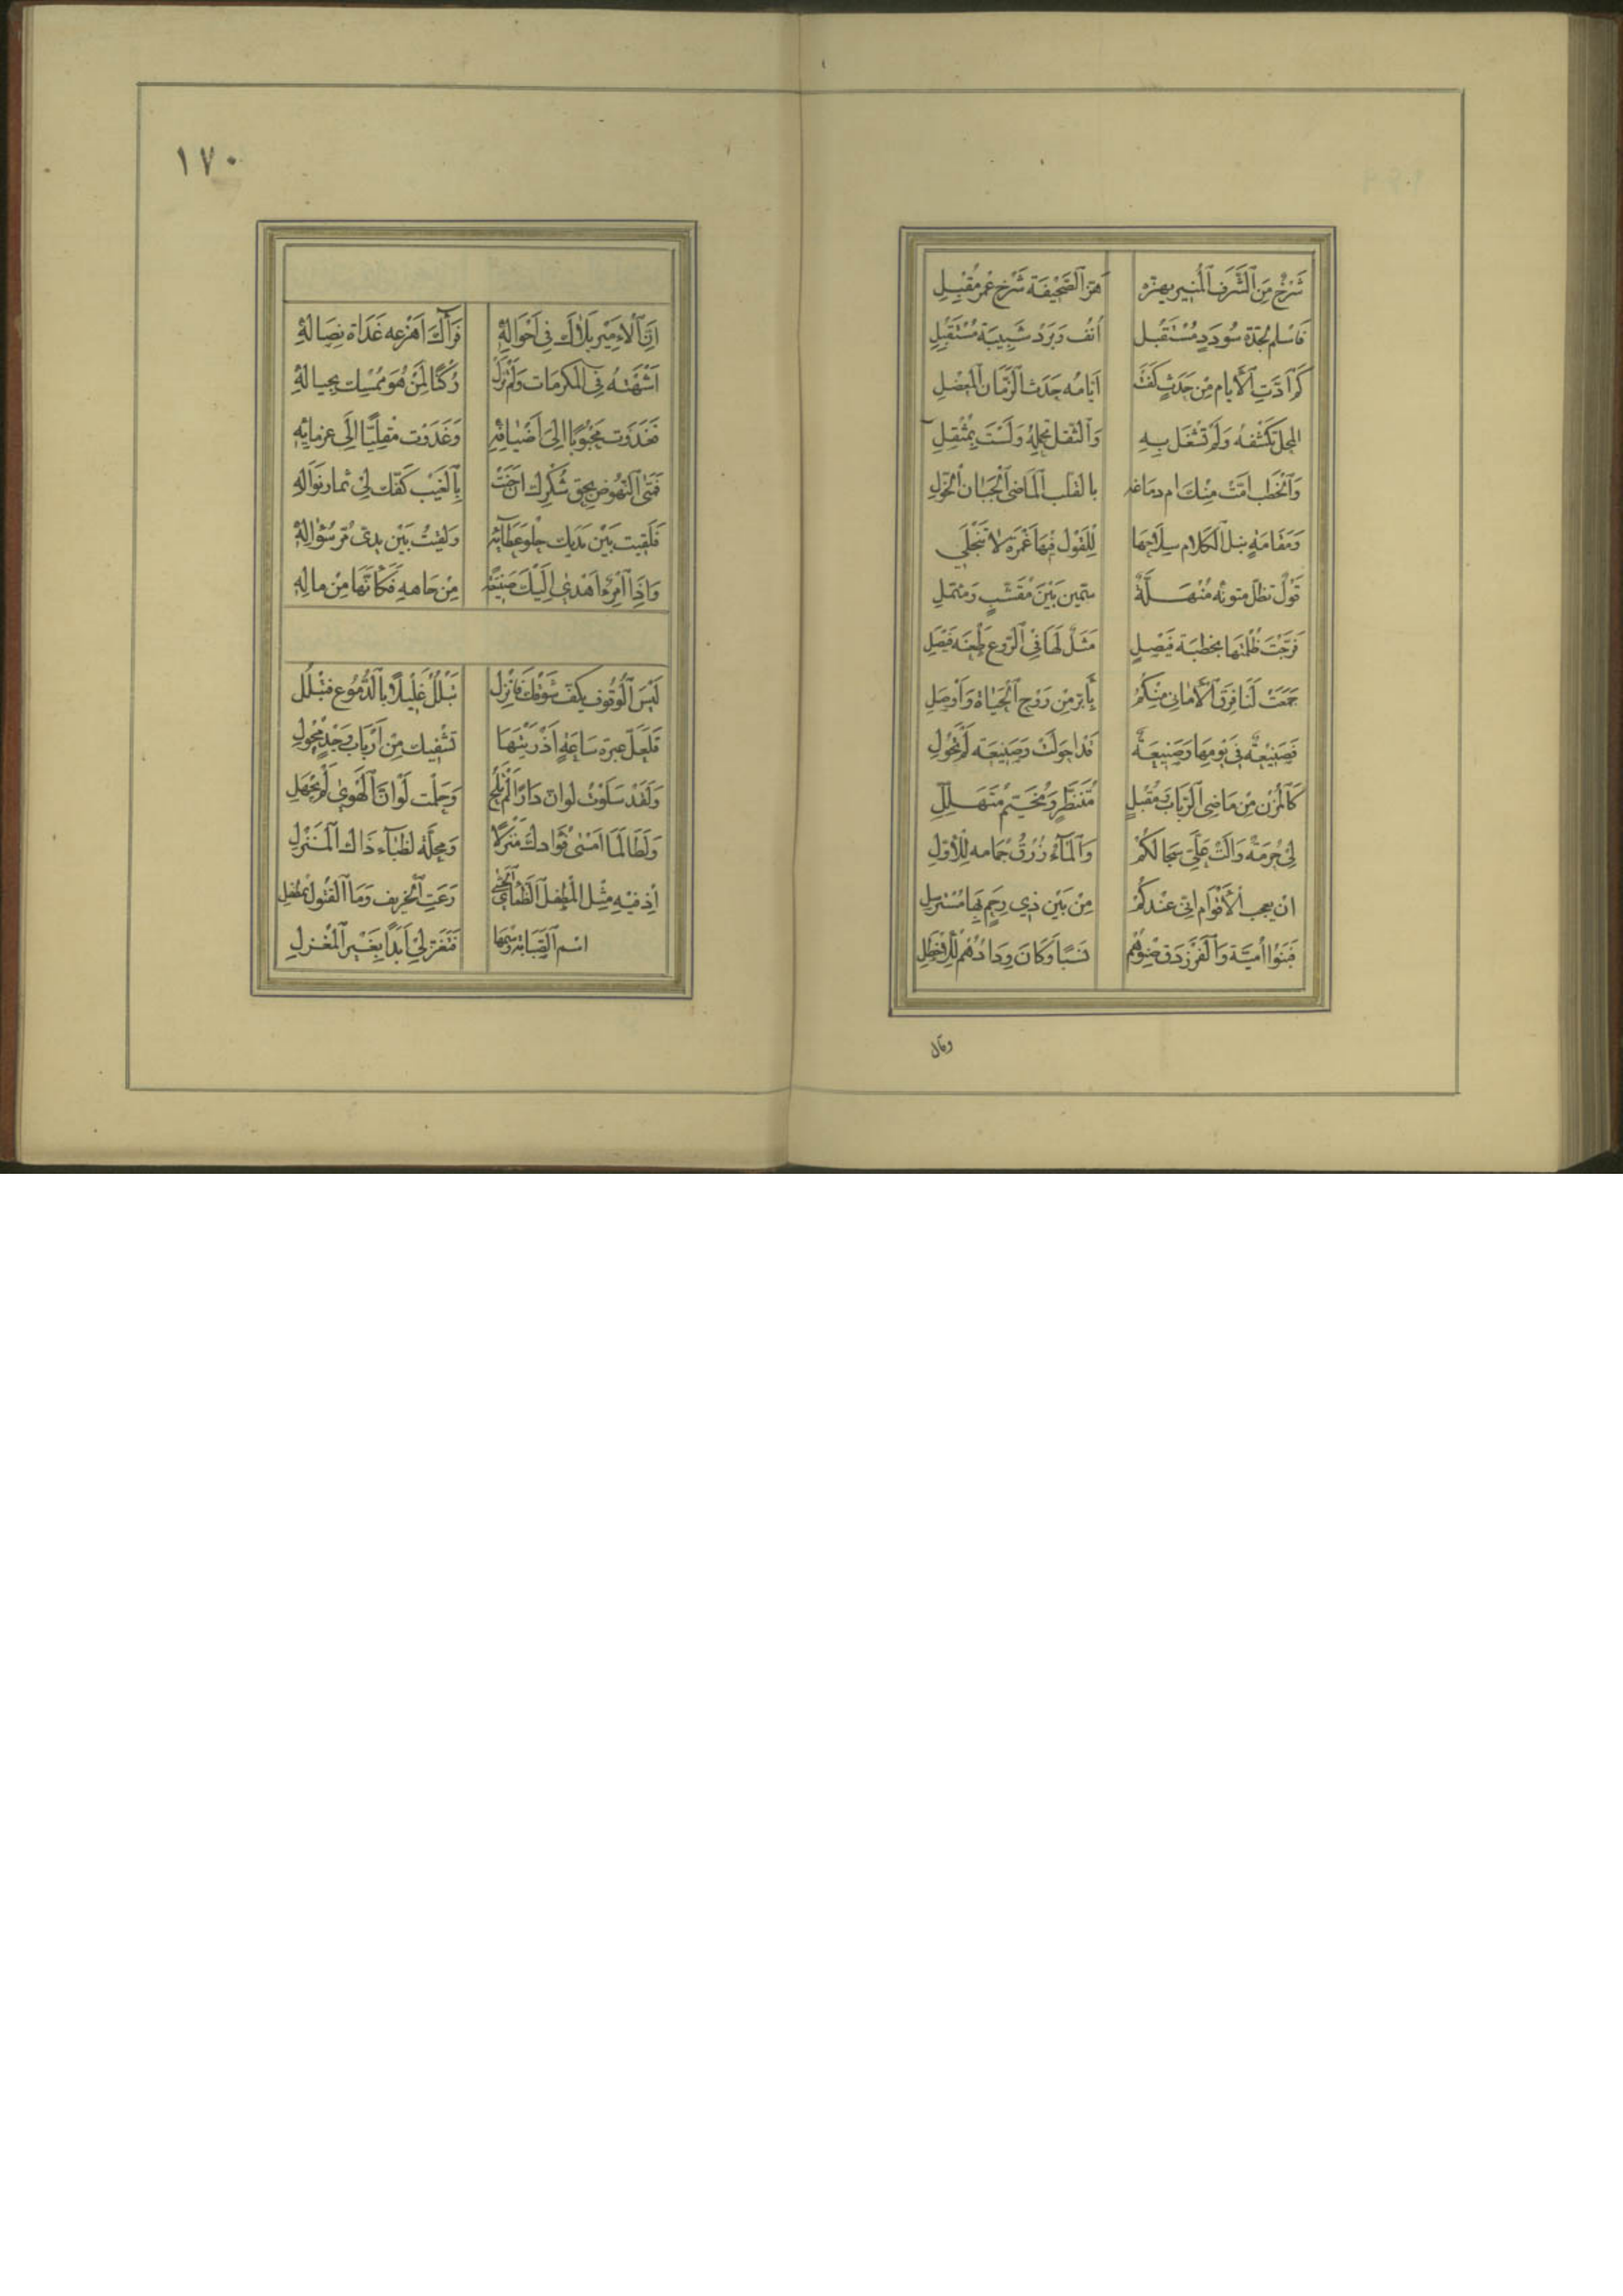 شَرْخٌ مِنَ ٱلشَّرَفِ ٱلْمُنِيرِ يهزه هَزَّ ٱلصَّحِيفَة شَرْخ عُمْرٍ مُقْبِلِ
فَاسْلَم لجدّة سُودَدٍ مُسْتَقْبَل أُنُف وَبَرْد شَبِيبَة مُسْتَقْبَلِ
كَمْ أدَّتِ ٱلْأيام مِن حَدَثٍ كَفَتْ أيّامُه حَدَث ٱلزَّمَان ٱلمعضِل
المحل تكشفهُ وَلَمْ تشْغَل بِهِ وَٱلثّقل تحمله وَلَسْتَ بِمُثْقَلِ
وَٱلْخَطْب امَّتْ مِنْكَ ام دماغه بالقلب ٱلْمَاضِي ٱلْجَبَان ٱلحُوَّلِ
وَمَقَامَةٍ نبل ٱلكَلام سِلَاحهَا لِلْقَوْل فِيهَا غَمْرَة لَا تَنْجَلِي
قَوْلٌ تظلّ متونه مُنْهَلَّةً سَمَّين بَيْنَ مُقَشَّبٍ وَمثمّلِ
فَرَّجْتَ ظُلْمَتَهَا بخطبَة فَيْصَلٍ مَثَلٌ لَهَا فِي ٱلرَّوْعِ طَعْنَة فَيْصَلِ
جَمَعَتْ لَنَا فِرَق ٱلْأمَانِي مِنْكُمُ بِأبَرّ مِن رَوْح ٱلْحَيَاة وَأوْصَلِ
فَصَنِيعَةٌ فِي يَوْمِهَا وَصَنِيعَةٌ قَد احولَتْ وَصَنِيعَة لَمْ تحْوِلِ
كَٱلْمُزْنِ مِن مَاضِي ٱلرَّبَابِ وَمُقْبِلٍ مُتَنَظَّرٍ وَمُخَيِّمٍ مُتَهَلِّلِ
لِي حُرْمَةٌ وَالَتْ عَلَيَّ سِجَالكُمْ وَٱلْمَاءُ زُرْقُ جمامه لِلْأوَّلِ
ان يعجب ٱلْأقْوَام انّي عِنْدَكُمْ مِن بَيْنِ ذِي رَحِمٍ بِهَا مُتَرسِّلِ
فَبَنُوا أُمَيَّة وَٱلْفَرَزْدَق صِنوهُم نَسَبًا وَكَانَ وِدَادُهُمْ لِلْأخْطَلِ
وقال
١٧٠
إنَّ ٱلْأمِير بَلاكَ فِي أحْوَالِهِ فَرَآكَ أهزعه غَدَاة نِضَالِهِ
فَغَدَوْت مَحْبُوبًا إلى أضْيَافِهِ وَغَدَوْت مقلِيًّا إلَى عزمالِهِ
فَمَتَى النّهُوض بِحَقِّ شُكْرِكَ ان جَنَتْ بِٱلْغَيْبِ كَفُّكَ لِي ثمار نَوَالِهِ
فَلَقِيت بَيْن يَدَيْك حلو عَطَائِهِ وَلَقِيتُ بَيْن يدي مُرّ سُؤَالِهِ
وَإذَا ٱمْرُؤٌ أهْدَى إلَيْك صَنِيعَةً مِنْ جَاهِهِ فَكَأنَّهَا مِنْ مالِهِ
لَيْسَ ٱلْوُقُوف يكف شَوْقَكَ فَانْزِل تَبْلُلْ غَلِيلًا بِٱلدُّمُوعِ فتبللِ
فَلَعَلّ عبرة سَاعَةٍ أذْرَيْتهَا تَشْفِيك مِن أرْبَاب وَجْدٍ مُحْوِلِ
وَلَقَدْ سَلَوْتُ لَو انّ دَارًا لَمْ تَلُحْ وَحَلُمْت لَوْ انَّ ٱلْهَوَى لَمْ يَجْهَلِ
وَلَطَالَمَا أمْسَى فُؤَادك مَنْزِلًا وَمَحَلّة لظِبَاءِ ذَاكَ ٱلْمَنْزِلِ
إذ فِيهِ مِثْل ٱلْمُطْفِل ٱلظمأى ٱلحشى رَعَتِ ٱلْخَرِيف وَمَا ٱلْقَتُول بمُطْفِلِ